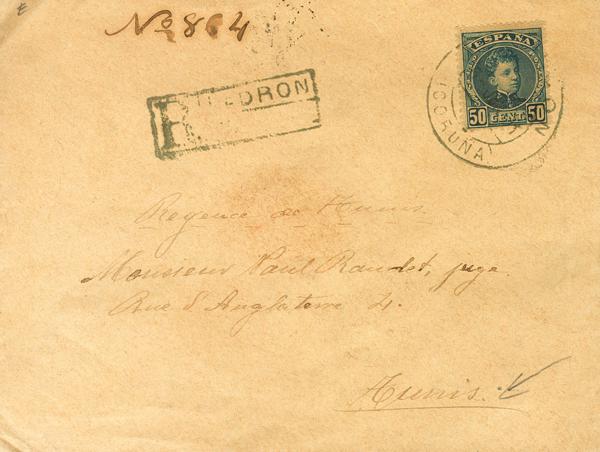 No 864
R
PADRON
ESPAÑA
50 CENT. 50
(CORUÑA)
Regence de Tunis.
Monsieur Paul Raudot, juge.
Rue d'Angleterre 4.
Tunis.